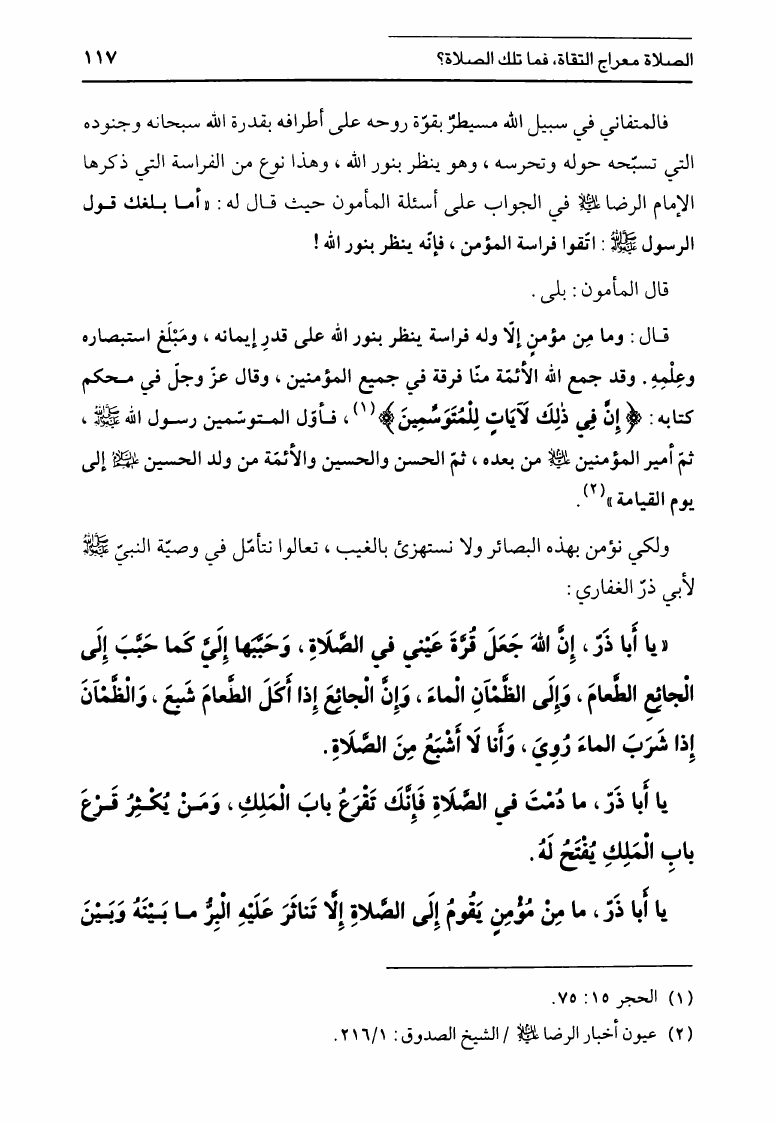 الصلاة معراج التقاة، فما تلك الصلاة؟ ١١٧
فالمتفاني في سبيل الله مسيطرٌ بقوّة روحه على أطرافه بقدرة الله سبحانه وجنوده
التي تسبّحه حوله وتحرسه ، وهو ينظر بنور الله ، وهذا نوع من الفراسة التي ذكرها
الإمام الرضا عليه السلام في الجواب على أسئلة المأمون حيث قـال له : «أمـا بـلغك قـول
الرسول ﷺ : اتّقوا فراسة المؤمن ، فإنّه ينظر بنور الله !
قال المأمون : بلى .
قـال : وما مِن مؤمنٍ إلّا وله فراسة ينظر بنور الله على قدرِ إيمانه ، ومَبْلَغ استبصاره
وعِلْمِهِ . وقد جمع الله الأئمّة منّا فرقة في جميع المؤمنين ، وقال عزّ وجلّ في مـحكم
كتابه : ﴿ إِنَّ فِي ذٰلِكَ لَآيَاتٍ لِلْمُتَوَسِّمِينَ ﴾(١) ، فـأوّل المـتوسّمين رسـول الله ﷺ ،
ثمّ أمير المؤمنين عليه السلام من بعده ، ثمّ الحسن والحسين والأئمّة من ولد الحسين عليهم السلام إلى
يوم القيامة »(٢) .
ولكي نؤمن بهذه البصائر ولا نستهزئ بالغيب ، تعالوا نتأمّل في وصيّة النبيّ ﷺ
لأبي ذرّ الغفاري :
«يا أَبا ذَرّ ، إِنَّ اللهَ جَعَلَ قُرَّةَ عَيْني في الصَّلَاةِ ، وَحَبَّبَها إِلَيَّ كَما حَبَّبَ إِلى
الْجائِعِ الطَّعامَ ، وَإِلَى الظَّمْآنِ الْماءَ ، وَإِنَّ الْجائِعَ إِذا أَكَلَ الطَّعامَ شَبِعَ ، وَالظَّمْآنَ
إِذا شَرَبَ الماءَ رُوِيَ ، وَأَنا لَا أَشْبَعُ مِنَ الصَّلَاةِ .
يا أَبا ذَرّ ، ما دُمْتَ في الصَّلَاةِ فَإِنَّكَ تَقْرَعُ بابَ الْمَلِكِ ، وَمَـنْ يُكْـثِرُ قَـرْعَ
بابِ الْمَلِكِ يُفْتَحُ لَهُ .
يا أَبا ذَرّ ، ما مِنْ مُؤْمِنٍ يَقُومُ إِلَى الصَّلاةِ إِلَّا تَناثَرَ عَلَيْهِ الْبِرُّ مـا بَـيْنَهُ وَبَـيْنَ
(١) الحجر ١٥ : ٧٥.
(٢) عيون أخبار الرضا عليه السلام / الشيخ الصدوق : ٢١٦/١ .